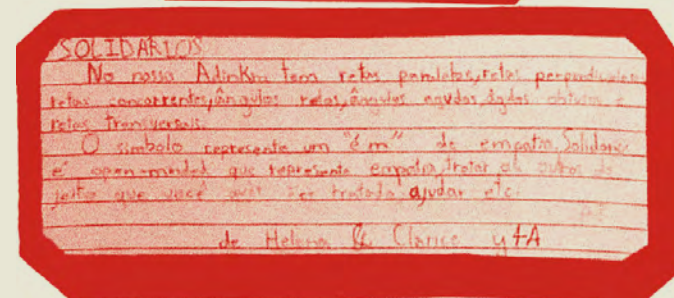 SOLIDARIOS
No nosso Adinkra tem retas paralelas, retas perpendiculares
retas concorrentes, ângulos retos, ângulos agudos, obtusos e
retas transversais.
O simbolo representa um "é m" de empatia, Solidarios
é open-minded que representa empatia, tratar os outros do
jeito que você quer ser tratada, ajudar etc.
de Helena & Clarice y4A